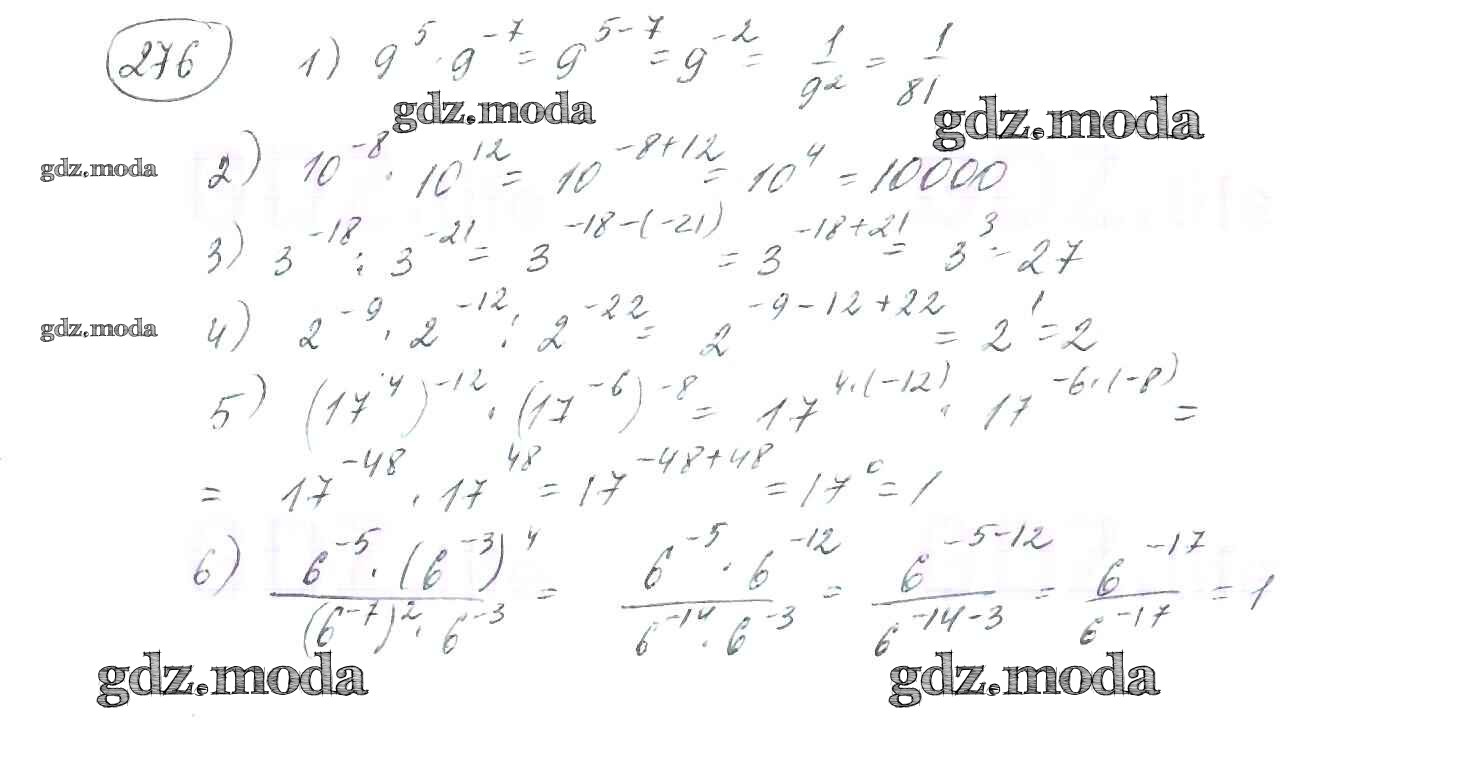 276 1) 9^5 · 9^-7 = 9^5-7 = 9^-2 = 1/9^2 = 1/81
gdz.moda gdz.moda
gdz.moda 2) 10^-8 · 10^12 = 10^-8+12 = 10^4 = 10000
3) 3^-18 : 3^-21 = 3^-18-(-21) = 3^-18+21 = 3^3 = 27
gdz.moda 4) 2^-9 · 2^-12 : 2^-22 = 2^-9-12+22 = 2^1 = 2
5) (17^4)^-12 · (17^-6)^-8 = 17^4·(-12) · 17^-6·(-8) =
= 17^-48 · 17^48 = 17^-48+48 = 17^0 = 1
6) 6^-5 · (6^-3)^4 / (6^-7)^2 · 6^-3 = 6^-5 · 6^-12 / 6^-14 · 6^-3 = 6^-5-12 / 6^-14-3 = 6^-17 / 6^-17 = 1
gdz.moda gdz.moda